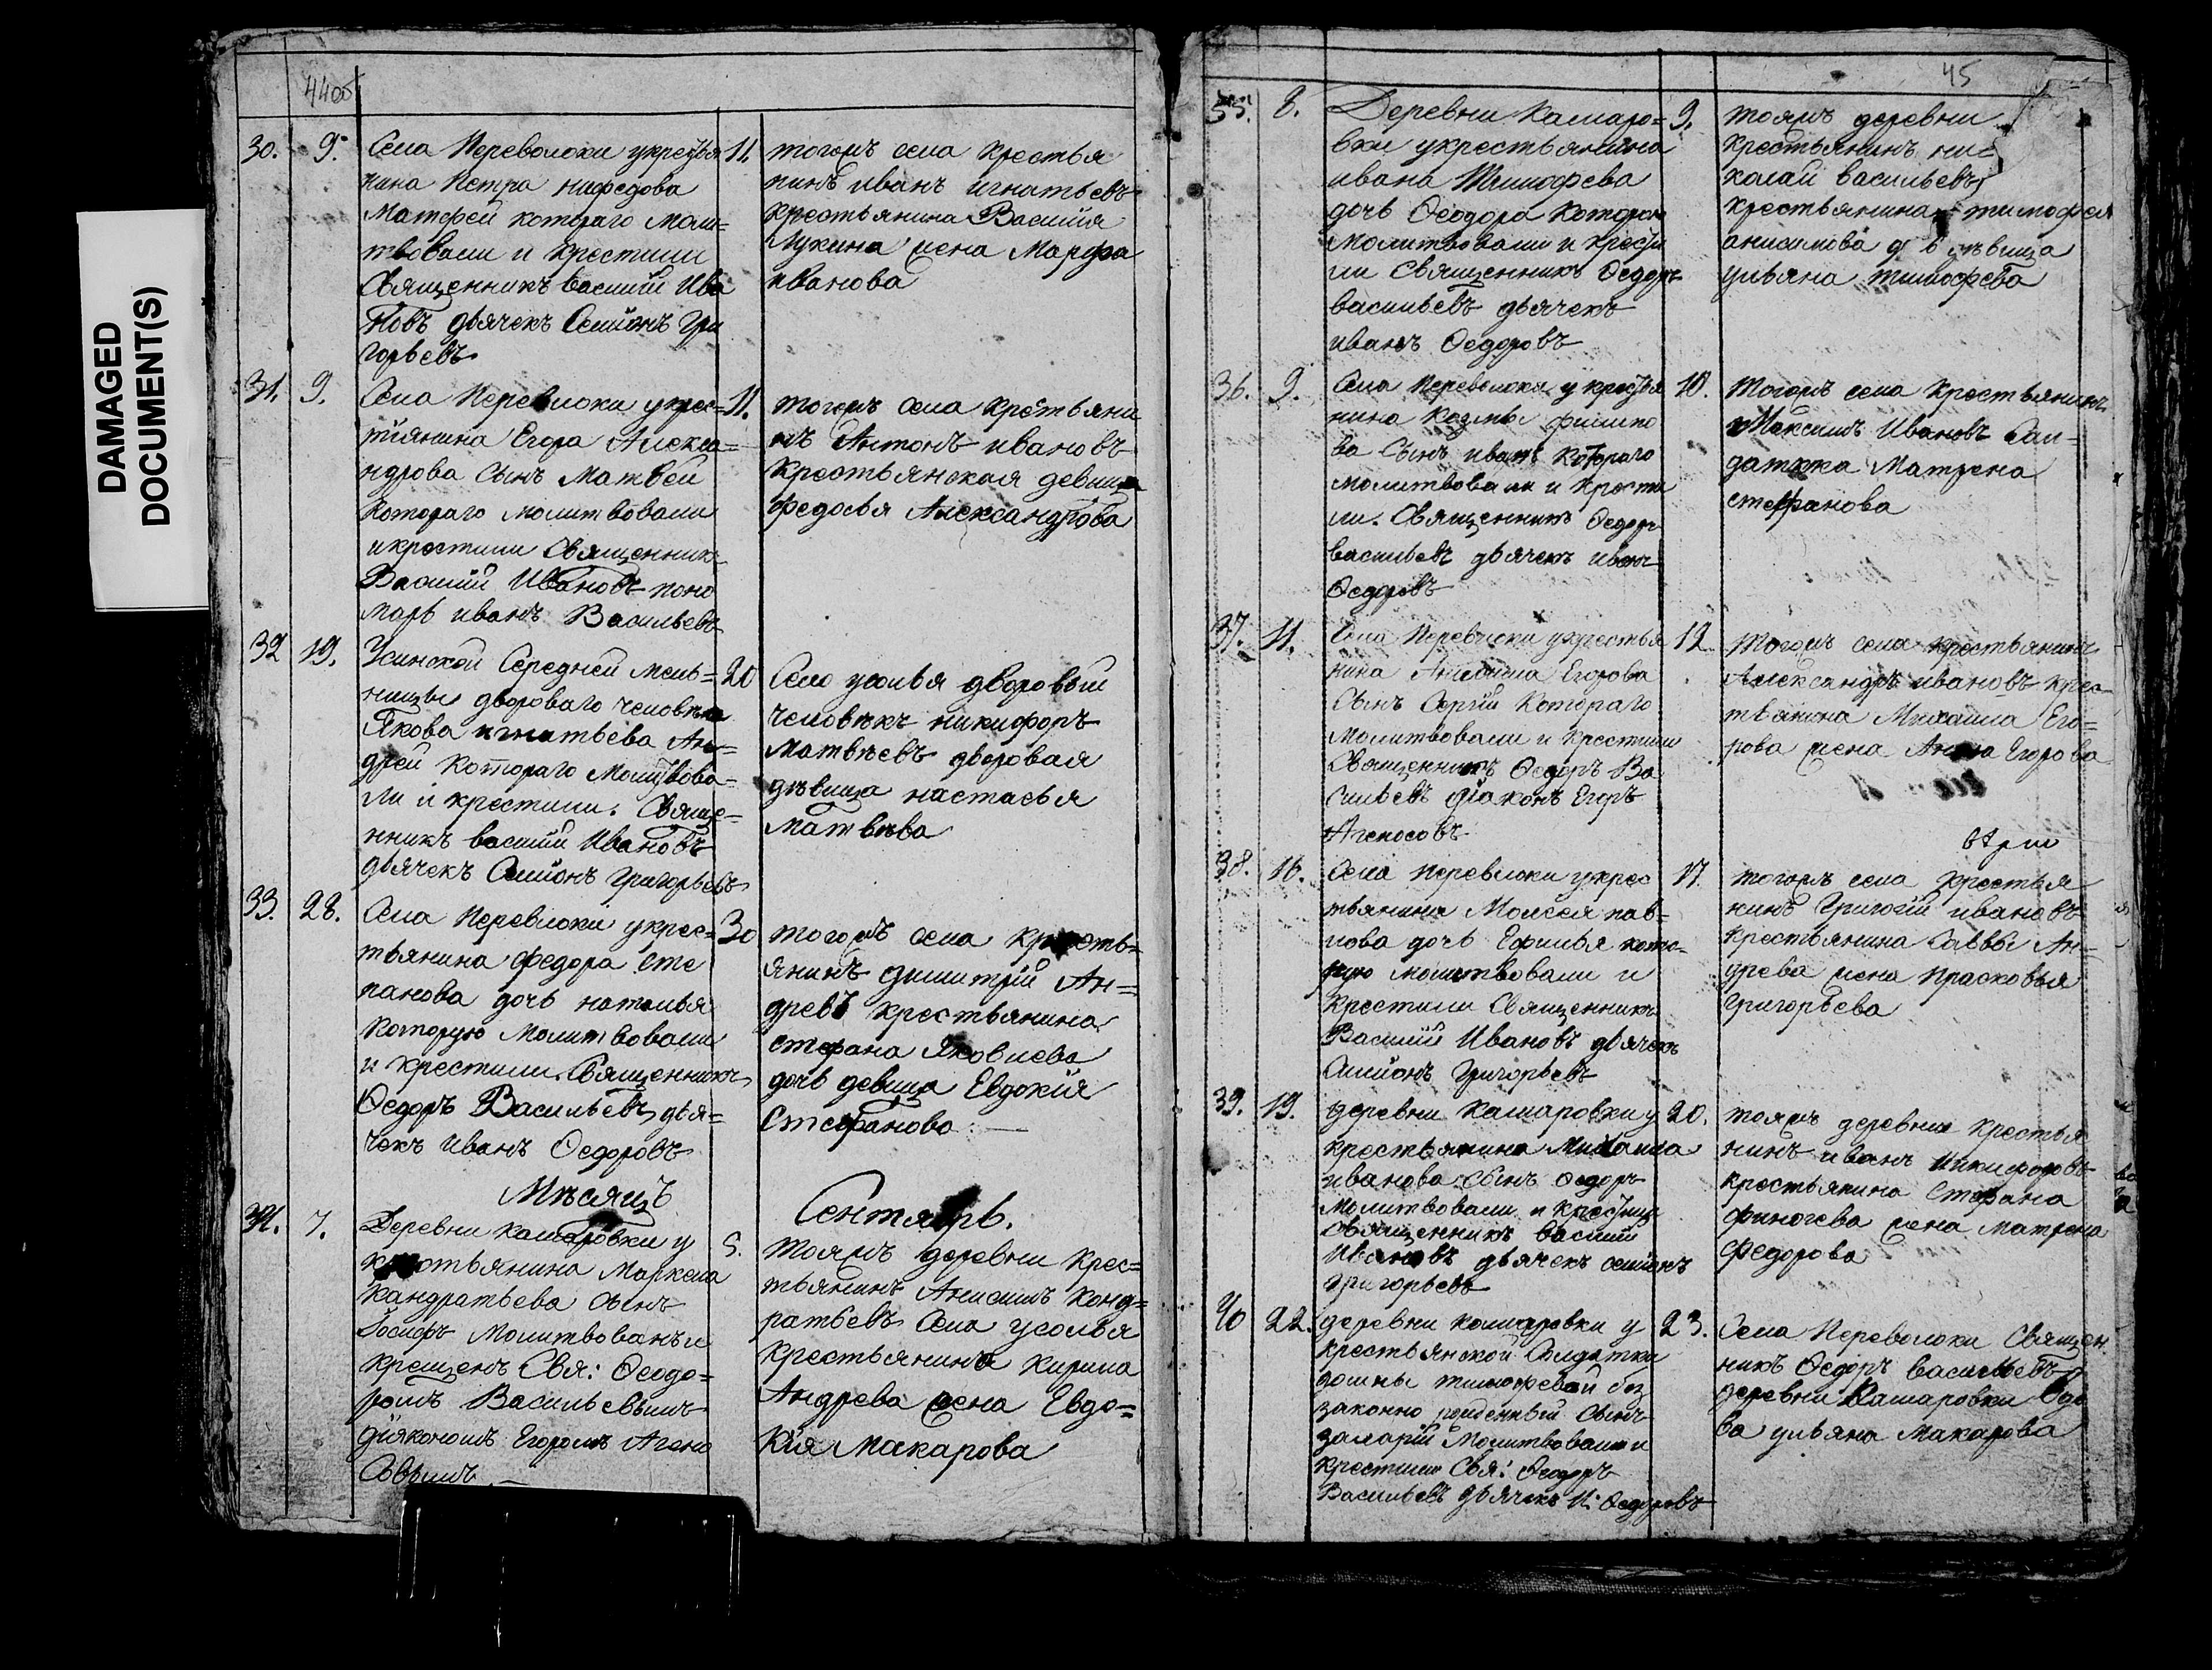 DAMAGED
DOCUMENT(S)
44об
30. 9. Села Переволоки укрестья
нина Петра нефедова
Матфей котораго моли=
твовали и крестили
Священникъ василий Ива
новъ дьячекъ Семионъ Гри
горьевъ
11. тогожъ села крестья
нинъ иванъ игнатьевъ
крестьянина Василия
Лукина жена Марфа
иванова
31. 9. Села Переволоки укрес=
тиянина Егора Алекса=
ндрова сынъ Матвей
котораго молитвовали
икрестили Священникъ
Василий Ивановъ поно
марь иванъ Васильевъ
11. тогожъ села крестьяни
нъ Антонъ ивановъ
крестьянская девица
федосья Александрова
32 19. Усинской Середней мель=
ницы двороваго человека
Якова игнатьева Ан=
дрей котораго молитвова=
ли и крестили. Свяще=
нникъ василий Ивановъ
дьячекъ Семионъ Григорьевъ
20 Село усолья дворовый
человѣкъ никифоръ
матвѣевъ дворовая
дѣвица настасья
матвѣва
33. 28. Села Переволоки укрес=
тьянина федора сте
панова дочь наталья
которую молитвовали
и крестили Священникъ
Ѳедоръ Васильевъ дья=
чекъ иванъ Ѳедоровъ
30 тогожъ села кресть=
янинъ димитрий Ан=
древъ крестьянина
стефана Яковлева
дочь девица Евдокия
Стефанова
Мѣсяцъ Сентябрь.
34. 7. Деревни камаровки у
крестьянина Маркела
кандратьева сынъ
Iосифъ молитвованъ и
крещенъ Свя: Ѳеодо=
ромъ Васильевымъ
дiякономъ Егоромъ Агено
совымъ
тояжъ деревни крес=
тьянинъ Анисимъ конд=
ратьевъ Села усолья
крестьянина кирила
Андрева жена Евдо=
кiя макарова
45
35. 8. Деревни Камаро=
вки укрестьянина
ивана Тимофева
дочь Ѳеодора котороя
молитвовали и крести
ли священникъ Ѳедоръ
васильевъ дьячекъ
иванъ Ѳедоровъ
9. тояжъ деревни
крестьянинъ ни=
колай васильевъ
крестьянина тимофея
анисимова дѣвица
ульяна тимофева
36. 9. Села переволоки у крестья
нина козмы филипо
ва сынъ иванъ котораго
молитвовали и крести
ли. Священникъ Ѳедоръ
васильевъ дьячекъ иванъ
Ѳедоровъ
10. тогожъ села крестьянинъ
Максимъ Ивановъ Сал=
датка Матрена
стефанова
37. 11. Села Переволоки укрестья
нина Егорова
сынъ Сергiй котораго
молитвовали и крестили
Священникъ Ѳедоръ Ва
сильевъ дiаконъ Егоръ
Агеносовъ
12 тогожъ села крестьянинъ
Александръ ивановъ крес=
тьянина Михаила Его=
рова жена Анна Егорова
38. 16. Села переволоки укрес
тьянина Моисея пав=
лова дочь Ефимья кото=
рую молитвовали и
крестили Священникъ
Василий Ивановъ дьячекъ
Симионъ Григорьевъ
17. тогожъ села крестья
нинъ Григорий ивановъ
крестьянина Саввы Ан=
древа жена Прасковья
григорьева
39. 19. деревни камаровки у
крестьянина Михаила
иванова сынъ Ѳедоръ
молитвовали и крестили
священникъ василий
Ивановъ дьячекъ семионъ
григорьевъ
20. тояжъ деревни крестья
нинъ иванъ никифоровъ
крестьянина Стефана
финогева жена матрена
федорова
40 22. деревни комаровки у
крестьянской Солдатки
домны тимофевой без
законно рожденный сынъ
захарий молитвовали и
крестили Свя: Ѳеодоръ
Васильевъ дьячекъ И: Ѳедоровъ
23. Села Переволоки Священ
никъ Ѳедоръ васильевъ
деревни Камаровки вдо
ва ульяна макарова